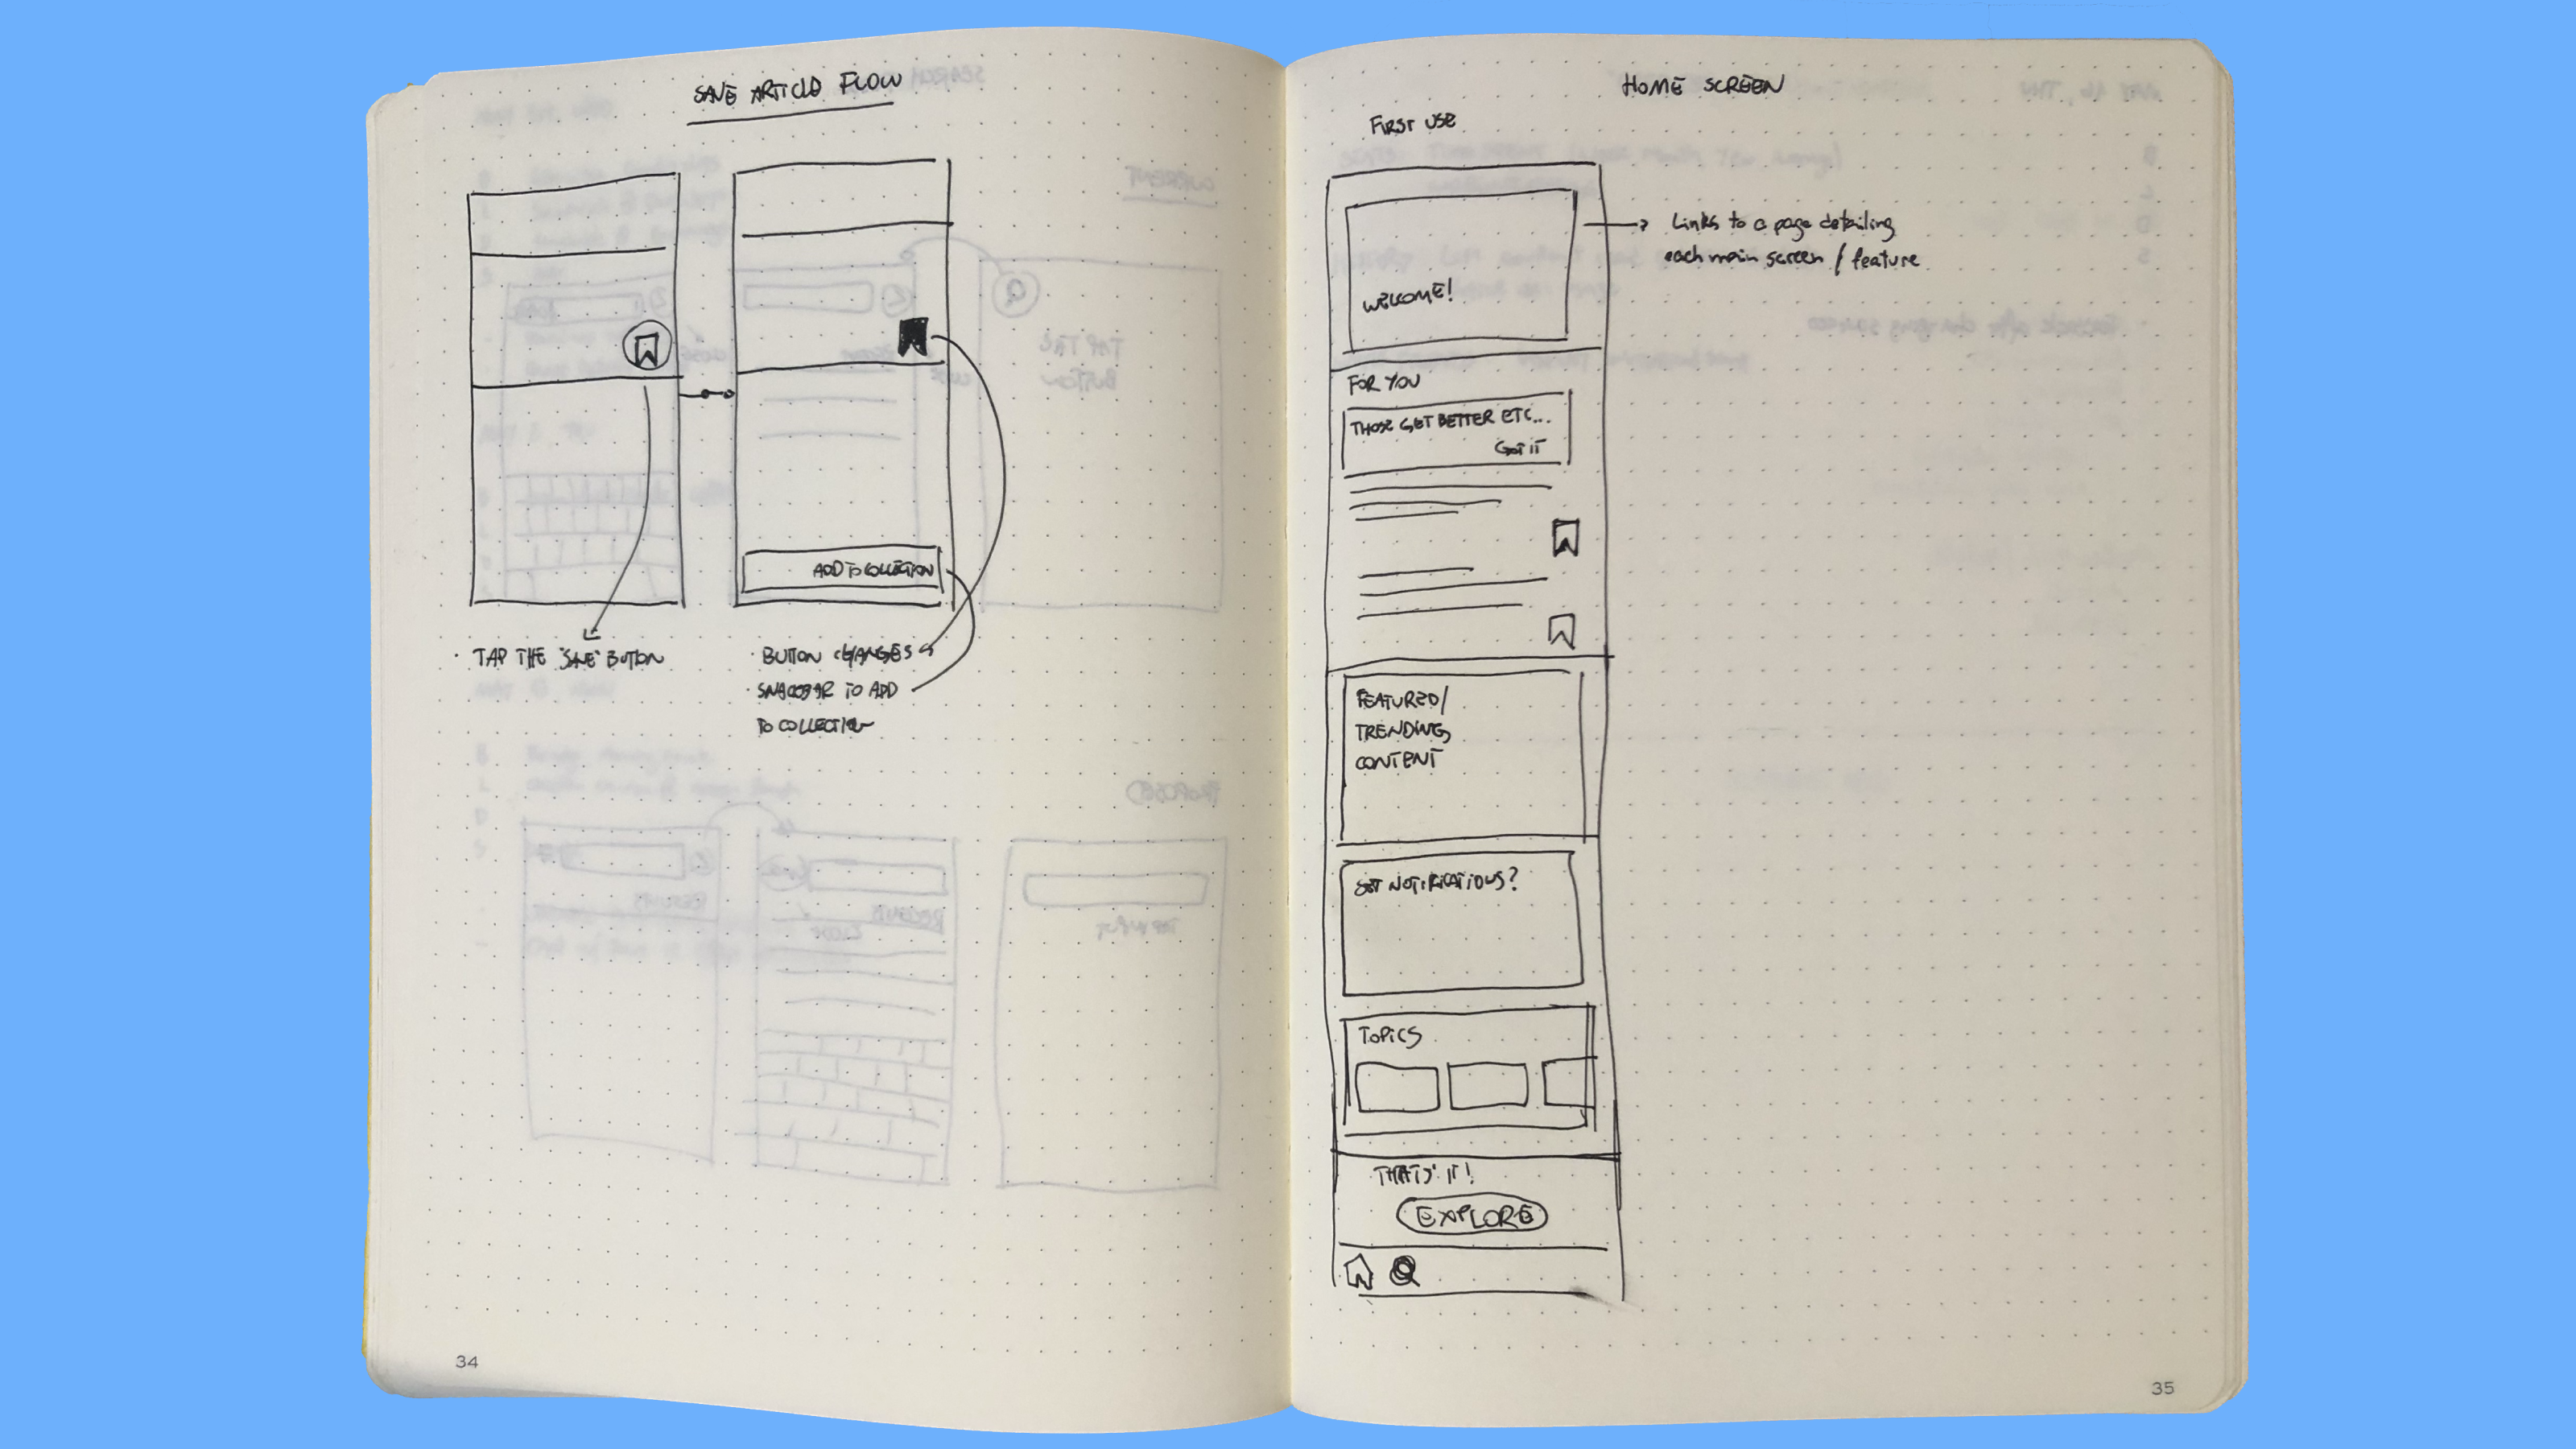 SAVE ARTICLE FLOW
ADD TO COLLECTION
· TAP THE "SAVE" BUTTON
· BUTTON CHANGES
· SNACKBAR TO ADD
TO COLLECTION
34
HOME SCREEN
FIRST USE
WELCOME!
Links to a page detailing
each main screen / feature
FOR YOU
THOSE GET BETTER ETC...
GOT IT
FEATURED/
TRENDING
CONTENT
SET NOTIFICATIONS?
TOPICS
THATS' IT!
EXPLORE
35
SEARCH
CURRENT
TAP THE
BUTTON
PROPOSED
RECENTS
RESULTS
TAP INPUT